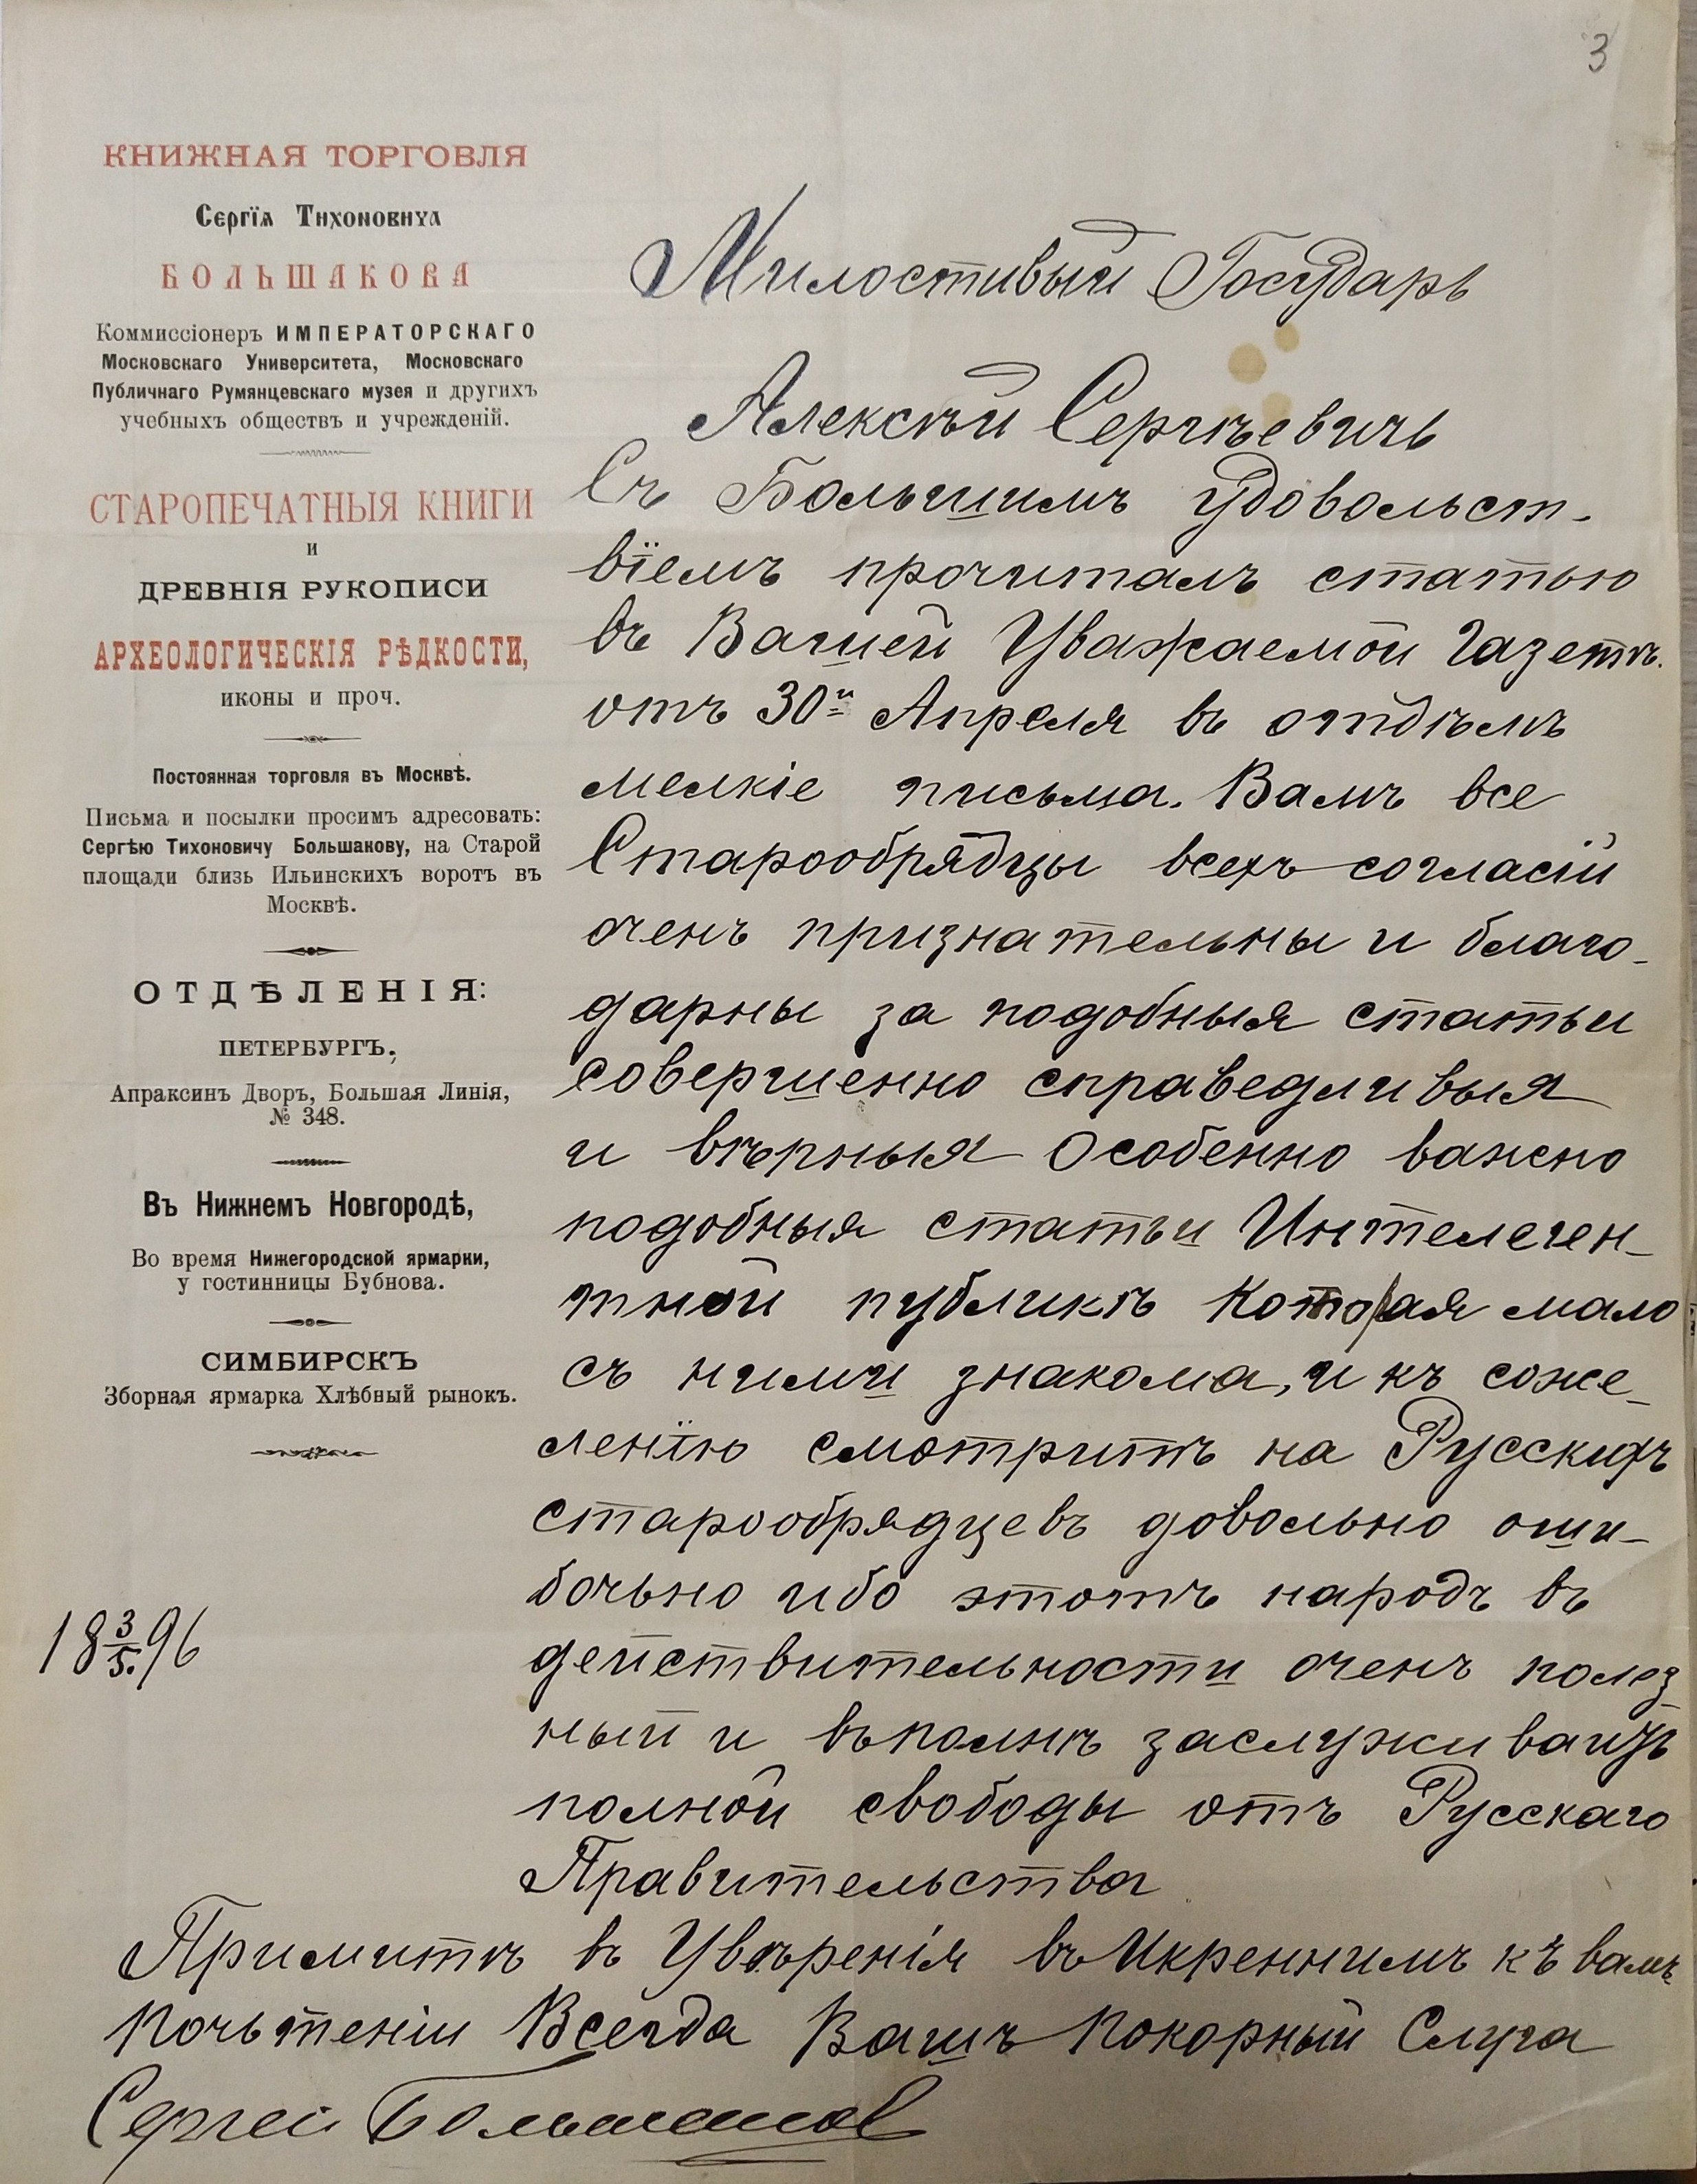 3
КНИЖНАЯ ТОРГОВЛЯ
Сергїѧ Тихоновича
БОЛЬШАКОВА
Коммиссіонеръ ИМПЕРАТОРСКАГО
Московскаго Университета, Московскаго
Публичнаго Румянцевскаго музея и другихъ
учебныхъ обществъ и учрежденій.
СТАРОПЕЧАТНЫЯ КНИГИ
и
ДРЕВНІЯ РУКОПИСИ
АРХЕОЛОГИЧЕСКІЯ РѢДКОСТИ,
иконы и проч.
Постоянная торговля въ Москвѣ.
Письма и посылки просимъ адресовать:
Сергѣю Тихоновичу Большакову, на Старой
площади близь Ильинскихъ воротъ въ
Москвѣ.
ОТДѢЛЕНІЯ:
ПЕТЕРБУРГЪ.
Апраксинъ Дворъ, Большая Линія,
№ 348.
Въ Нижнемъ Новгородѣ,
Во время Нижегородской ярмарки,
у гостинницы Бубнова.
СИМБИРСКЪ
Зборная ярмарка Хлѣбный рынокъ.
18 3/5. 96
Милостивый Государь
Алексѣй Сергѣевичь
Съ Большимъ удовольст-
вїемъ прочиталъ статью
въ Вашей Уважаемой Газетѣ.
отъ 30й Апреля въ отдѣлѣ
мелкіе письма. Вамъ все
Старообрядцы всехъ согласій
оченъ признательны и благо-
дарны за подобныя статьи
совершенно справедливыя
и вѣрныя Особенно важно
подобныя статьи Интелеген-
тной публикѣ Которая мало
съ ними знакома, и къ соже-
ленїю смотритъ на Русскихъ
старообрядцевъ довольно оши-
бочьно ибо этотъ народъ въ
действительности оченъ полез-
ный и въполнѣ заслуживаиъ
полной свободы отъ Русскаго
Правительства
Примитѣ въ Увѣренія въ Икреннимъ къ вамъ
почьтеніи Всегда Вашъ покорный Слуга
Сергей Большаков